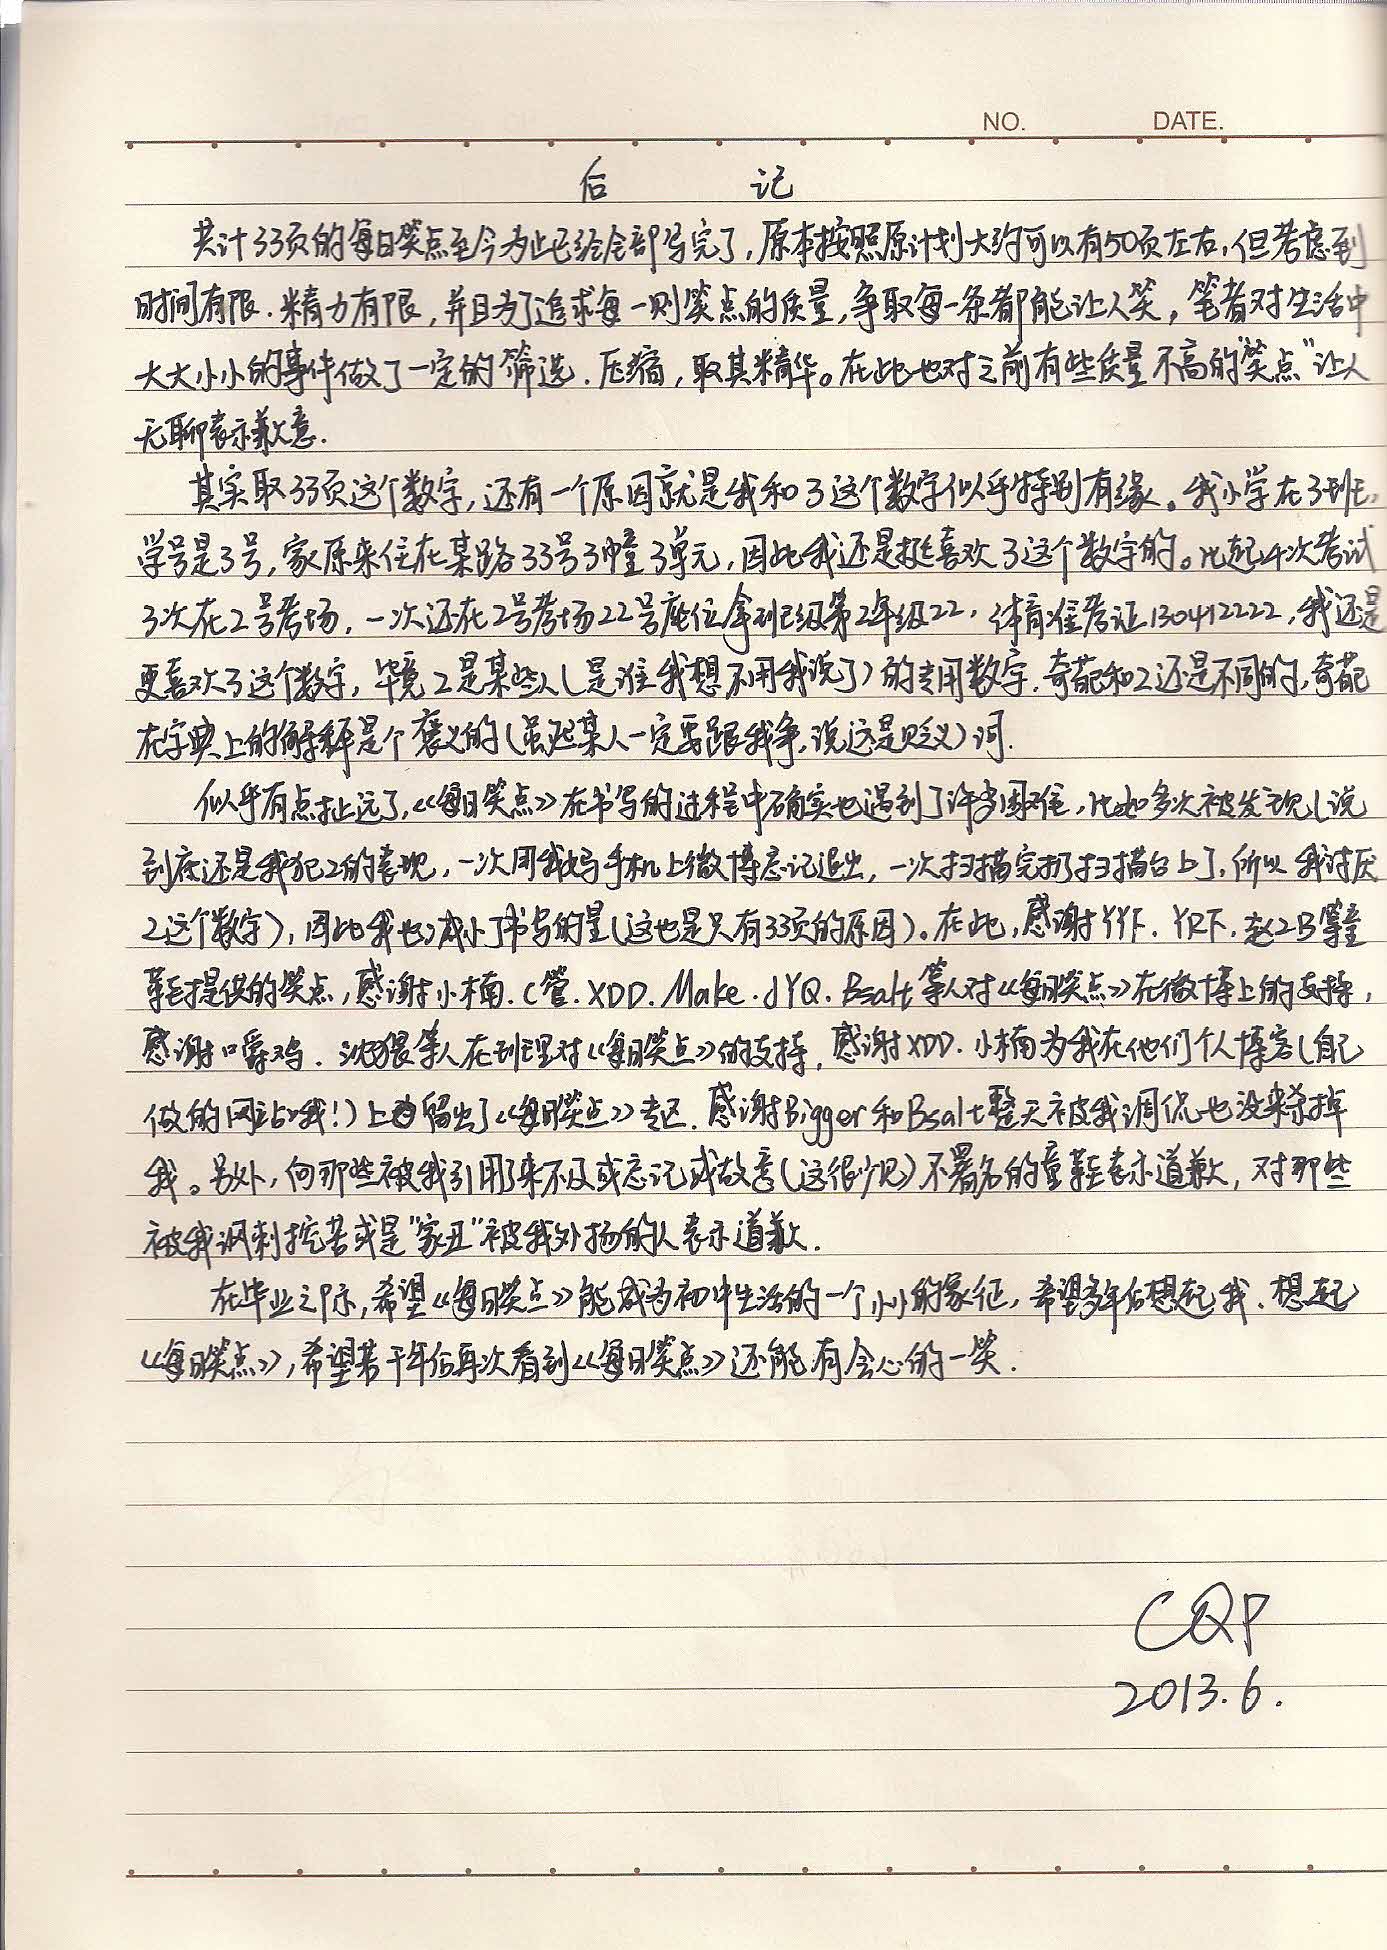 NO. DATE.
后 记
共计33页的每日笑点至今为止已经全部写完了,原本按照原计划大约可以有50页左右,但考虑到
时间有限、精力有限,并且为了追求每一则笑点的质量,争取每一条都能让人笑,笔者对生活中
大大小小的事件做了一定的筛选、压缩,取其精华。在此也对之前有些质量不高的"笑点"让人
无聊表示歉意.
其实取33页这个数字,还有一个原因就是我和3这个数字似乎特别有缘。我小学在3班,
学号是3号,家原来住在某路33号3幢3单元,因此我还是挺喜欢3这个数字的。比起4次考试
3次在2号考场,一次还在2号考场22号座位拿班级第2年级22,体育准考证130412222,我还是
更喜欢3这个数字,毕竟2是某些人(是谁我想不用我说了)的专用数字.奇葩和2还是不同的,奇葩
在字典上的解释是个褒义的(虽然某人一定要跟我争,说这是贬义)词.
似乎有点扯远了,《每日笑点》在书写的过程中确实也遇到了许多困难,比如多次被发现(说
到底还是我犯2的表现,一次用我妈手机上微博忘记退出,一次扫描完扔扫描台上了,所以我讨厌
2这个数字),因此我也减小了书写的量(这也是只有33页的原因)。在此,感谢YYF、YRF、赵2B等童
鞋提供的笑点,感谢小楠、C管、XDD、Make、JYQ、Bsalt等人对《每日笑点》在微博上的支持,
感谢口爵鸡、沈猥等人在班里对《每日笑点》的支持,感谢XDD、小楠为我在他们个人博客(自己
做的网站哦!)上留出了《每日笑点》专区.感谢Bigger和Bsalt整天被我调侃也没来杀掉
我。另外,向那些被我引用了来不及或忘记或故意(这很少见)不署名的童鞋表示道歉,对那些
被我讽刺挖苦或是"家丑"被我外扬的人表示道歉.
在毕业之际,希望《每日笑点》能成为初中生活的一个小小的象征,希望多年后想起我、想起
《每日笑点》,希望若干年后再次看到《每日笑点》还能有会心的一笑.
CQP
2013.6.